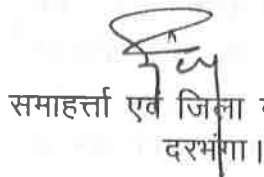 समाहर्त्ता एवं जिला
दरभंगा।